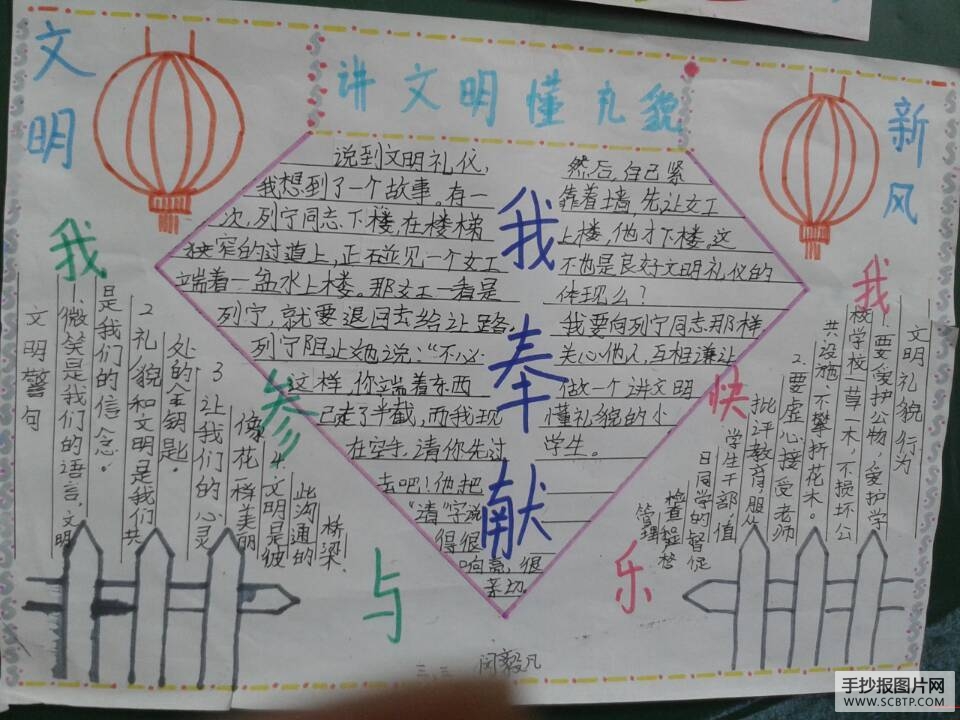 讲文明懂礼貌
文明
新风
我参与
我奉献
我快乐
说到文明礼仪，
我想到了一个故事。有一
次，列宁同志下楼，在楼梯
狭窄的过道上，正在碰见一个女工
端着一盆水上楼。那女工一看是
列宁，就要退回去给让路。
列宁阻止她说：“不必
这样，你端着东西
已走了半截，而我现
在空手，请你先过
去吧！他把
“请”字说
得很
响亮，很
亲切。
然后，自己紧
靠着墙，先让女工
上楼，他才下楼。这
不也是良好文明礼仪的
体现么？
我要向列宁同志那样
关心他人，互相谦让
做一个讲文明
懂礼貌的小
学生。
文明警句
1、微笑是我们的语言，文明
是我们的信念。
2、礼貌和文明是我们共
处的金钥匙。
3、让我们的心灵
像花一样美丽
4、文明是彼
此沟通的
桥梁。
文明礼貌行为
1、要爱护公物，爱护学
校学校一草一木，不损坏公
共设施，不攀折花木。
2、要虚心接受老师
批评教育，服从
学生干部，值
日同学的督促
检查
管理
三、三
闵毅凡
手抄报图片网
WWW.SCBTP.COM